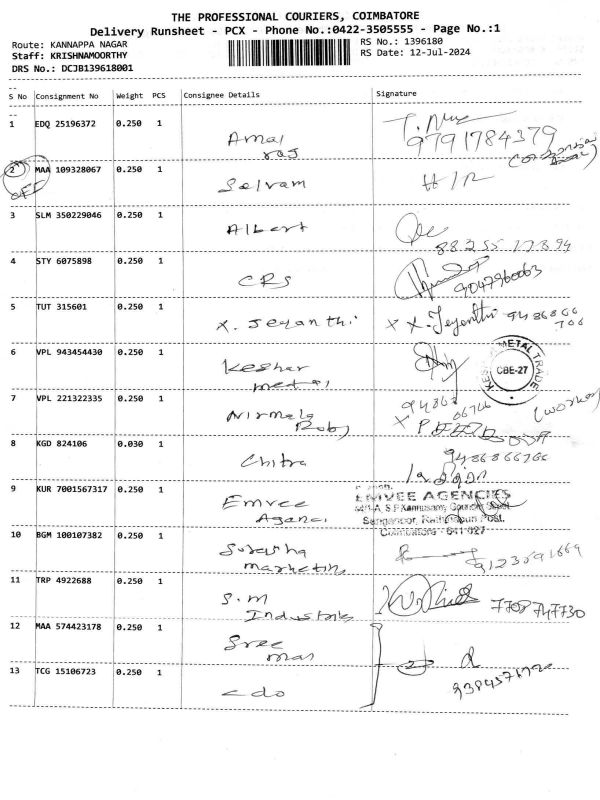 THE PROFESSIONAL COURIERS, COIMBATORE
Delivery Runsheet - PCX - Phone No.:0422-3505555 - Page No.:1
Route: KANNAPPA NAGAR
RS No.: 1396180
Staff: KRISHNAMOORTHY
RS Date: 12-Jul-2024
DRS No.: DCJB139618001
S No Consignment No Weight PCS Consignee Details Signature
1 EDQ 25196372 0.250 1 Amal
raj
9791784379
2 MAA 109328067 0.250 1 Selvam
3 SLM 350229046 0.250 1 Albert
4 STY 6075898 0.250 1 CRS
9047960063
5 TUT 315601 0.250 1 X. Jeyanthi X X. Jeyanthi 9486866
766
6 VPL 943454430 0.250 1 Keshar
metal
METAL TRADE
CBE-27
7 VPL 221322335 0.250 1 Nirmala
Roby
(worker)
8 KGD 824106 0.030 1 Chitra 9486866766
9 KUR 7001567317 0.250 1 Emvee
EMVEE AGENCIES
10 BGM 100107382 0.250 1 Suraksha
marketing
11 TRP 4922688 0.250 1 S.M
Industries
7708747730
12 MAA 574423178 0.250 1 Sree
13 TCG 15106723 0.250 1 cdo